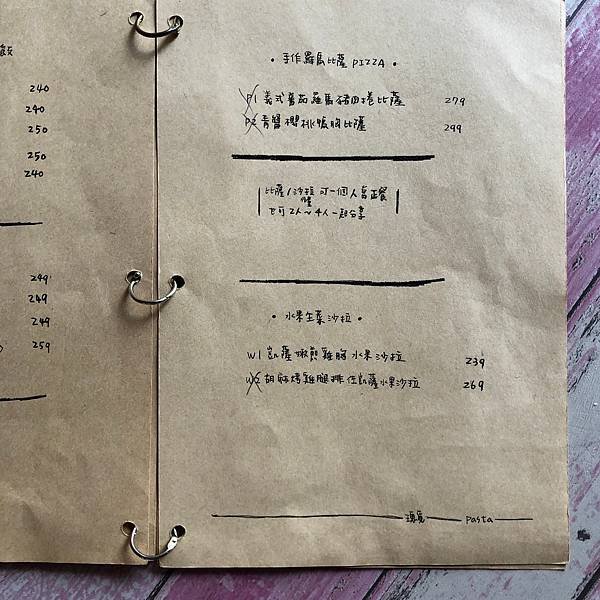 飯
240
240
250
250
240
249
249
249
259
• 手作羅馬比薩 PIZZA •
P1 義式番茄羅馬豬肉捲比薩 279
P2 青醬櫻桃鴨胸比薩 299
比薩/沙拉 可一個人當正餐
也可2人~4人一起分享
• 水果生菜沙拉 •
W1 凱薩嫩煎雞胸水果沙拉 239
W2 胡麻烤雞腿排佐凱薩水果沙拉 269
Pasta